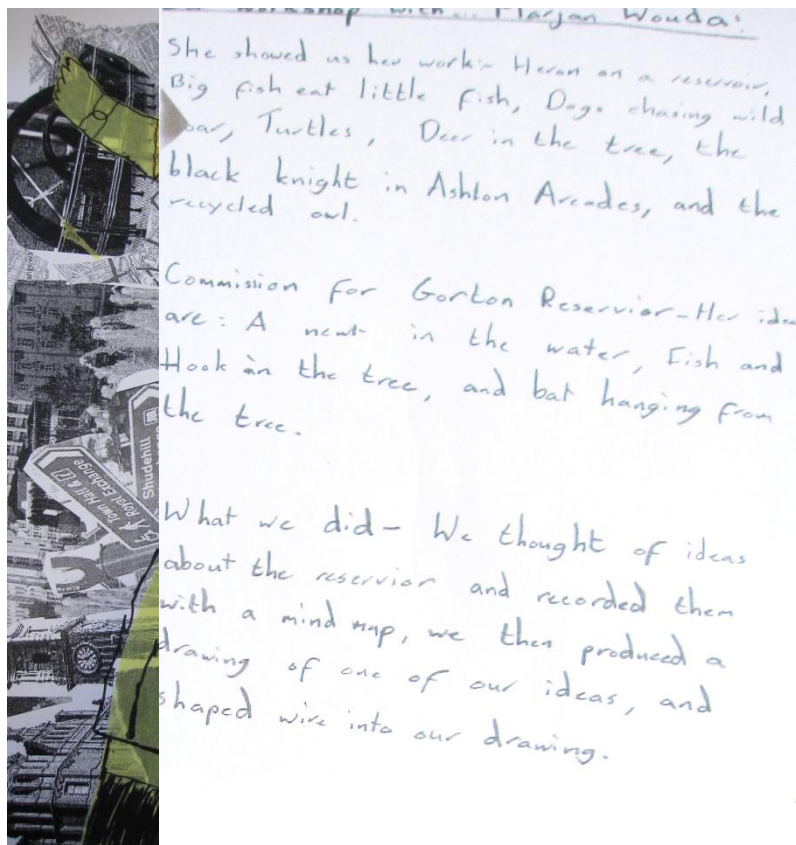 Workshop with... Marjan Wouda:
She showed us her work:- Heron on a reservoir,
Big fish eat little fish, Dogs chasing wild
oar, Turtles, Deer in the tree, the
black knight in Ashton Arcades, and the
recycled owl.
Commission for Gorton Reservior - Her idea
are: A newt in the water, Fish and
Hook in the tree, and bat hanging from
the tree.
What we did - We thought of ideas
about the reservior and recorded them
with a mind map, we then produced a
drawing of one of our ideas, and
shaped wire into our drawing.
Town Hall &
Royal Exchange
Shudehill